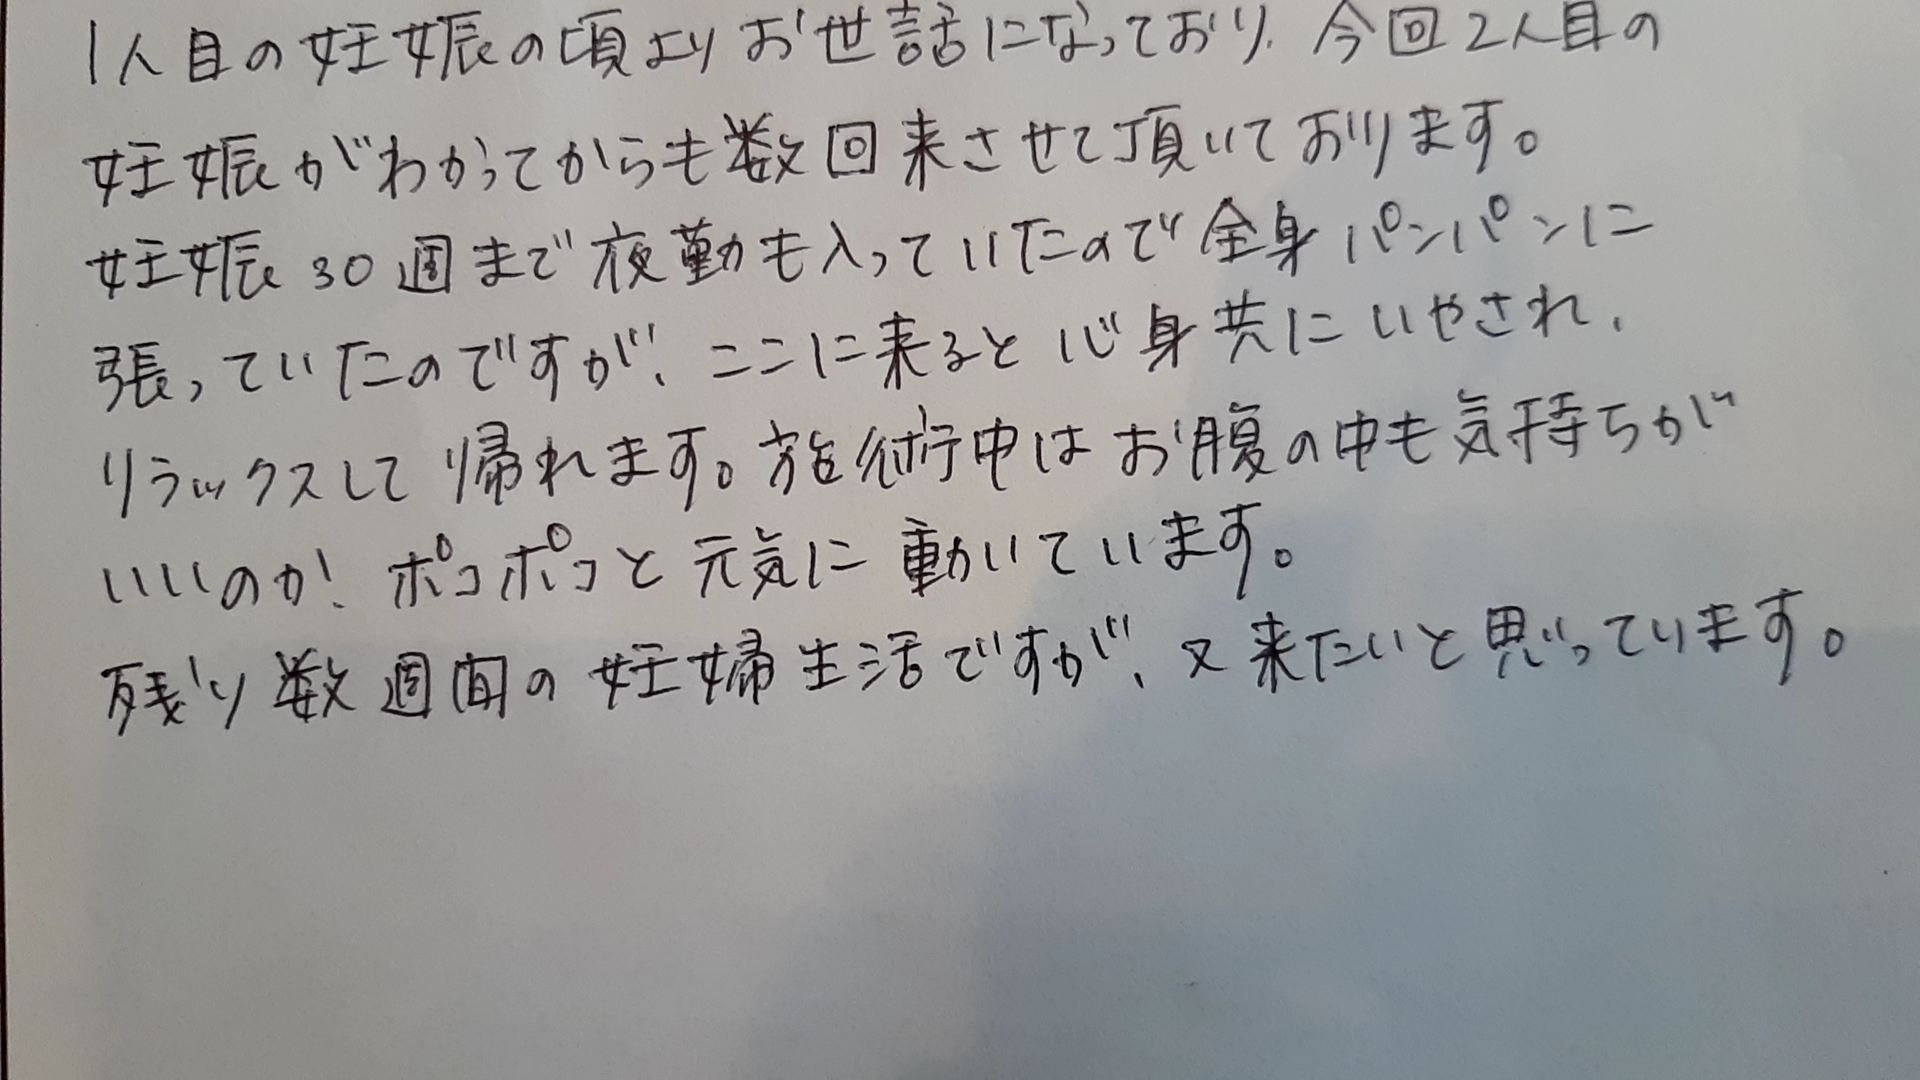 1人目の妊娠の頃よりお世話になっており、今回2人目の
妊娠がわかってからも数回来させて頂いております。
妊娠30週まで夜勤も入っていたので全身パンパンに
張っていたのですが、ここに来ると心身共にいやされ、
リラックスして帰れます。施術中はお腹の中も気持ちが
いいのか! ポコポコと元気に動いています。
残り数週間の妊婦生活ですが、又来たいと思っています。